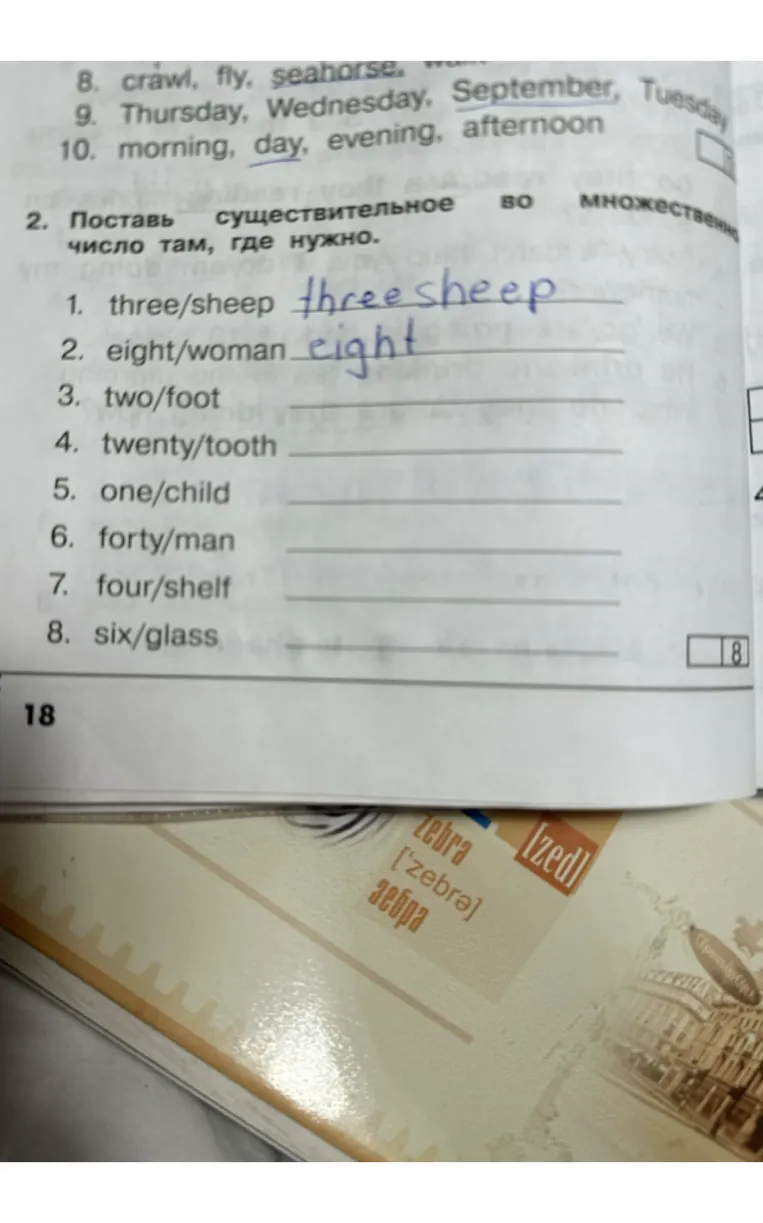 8. crawl, fly, seahorse,
9. Thursday, Wednesday, September, Tuesday
10. morning, day, evening, afternoon
2. Поставь существительное во множественно
число там, где нужно.
1. three/sheep three sheep
2. eight/woman eight
3. two/foot
4. twenty/tooth
5. one/child
6. forty/man
7. four/shelf
8. six/glass
8
18
zebra
['zebrə]
зебра
[zed]